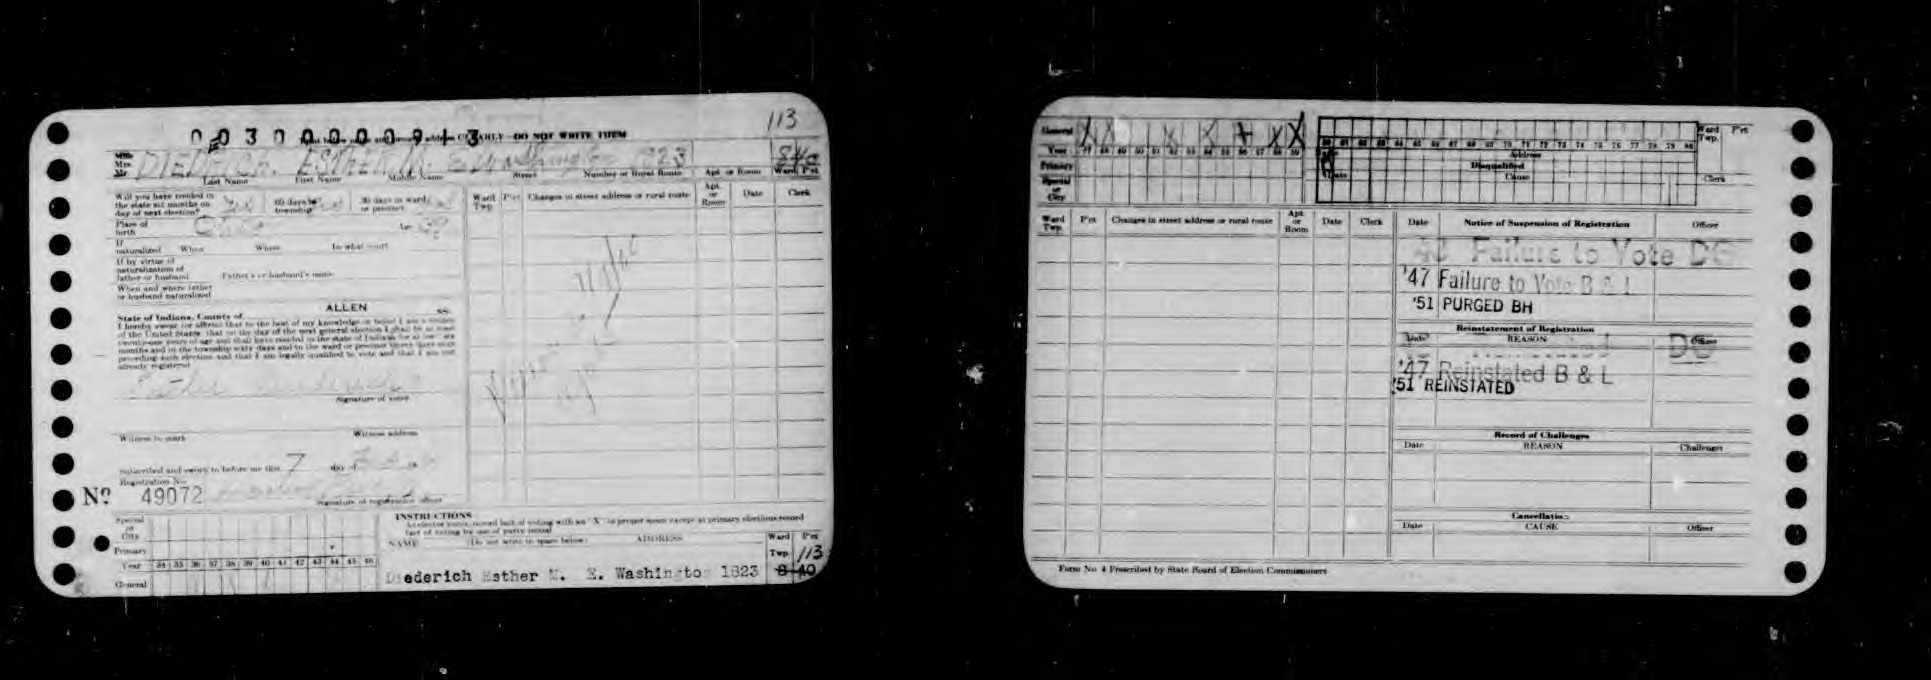 113
00300000913
CLEARLY - DO NOT WRITE THEM
Mrs.
Mr
DIEDERICH, ESTHER M. E Washington 1823 8 40
Last Name First Name Middle Name Street Number or Rural Route Apt or Room Ward P'ct
Will you have resided in
the state six months on
day of next election? 60 days in
township 30 days in ward
or precinct
Place of
birth Ohio Age
If
naturalized When Where In what court
If by virtue of
naturalization of
father or husband Father's or husband's name
When and where father
or husband naturalized
ALLEN
State of Indiana, County of ss:
I hereby swear (or affirm) that to the best of my knowledge or belief I am a citizen
of the United States, that on the day of the next general election I shall be at least
twenty-one years of age and shall have resided in the state of Indiana for at least six
months and in the township sixty days and in the ward or precinct thirty days next
preceding such election and that I am legally qualified to vote and that I am not
already registered
Esther
Signature of voter
Witness to mark Witness address
Subscribed and sworn to before me this 7 day of
Registration No.
No 49072
Signature of registration officer
Ward
Twp. P'ct Changes in street address or rural route Apt.
or
Room Date Clerk
Special
or
City
Primary
Year 34 35 36 37 38 39 40 41 42 43 44 45 46
General
INSTRUCTIONS
At elector votes, record fact of voting with an "X" in proper space except at primary elections record
fact of voting by use of party initial
NAME (Do not write in space below) ADDRESS Ward P'ct
Twp. 113
Diederich Esther M. E. Washington 1823 8 40
General X X X X X X X
Year 47 48 49 50 51 52 53 54 55 56 57 58 59
Primary
Special
or
City
60 61 62 63 64 65 66 67 68 69 70 71 72 73 74 75 76 77 78 79 80
Ward
Twp. P'ct
Address
Disqualified
Date Cause Clerk
Ward
Twp. P'ct Changes in street address or rural route Apt
or
Room Date Clerk
Date Notice of Suspension of Registration Officer
Failure to Vote DC
'47 Failure to Vote B & L
'51 PURGED BH
Reinstatement of Registration
Date REASON Officer
DC
'47 Reinstated B & L
'51 REINSTATED
Record of Challenges
Date REASON Challenger
Cancellation
Date CAUSE Officer
Form No 4 Prescribed by State Board of Election Commissioners